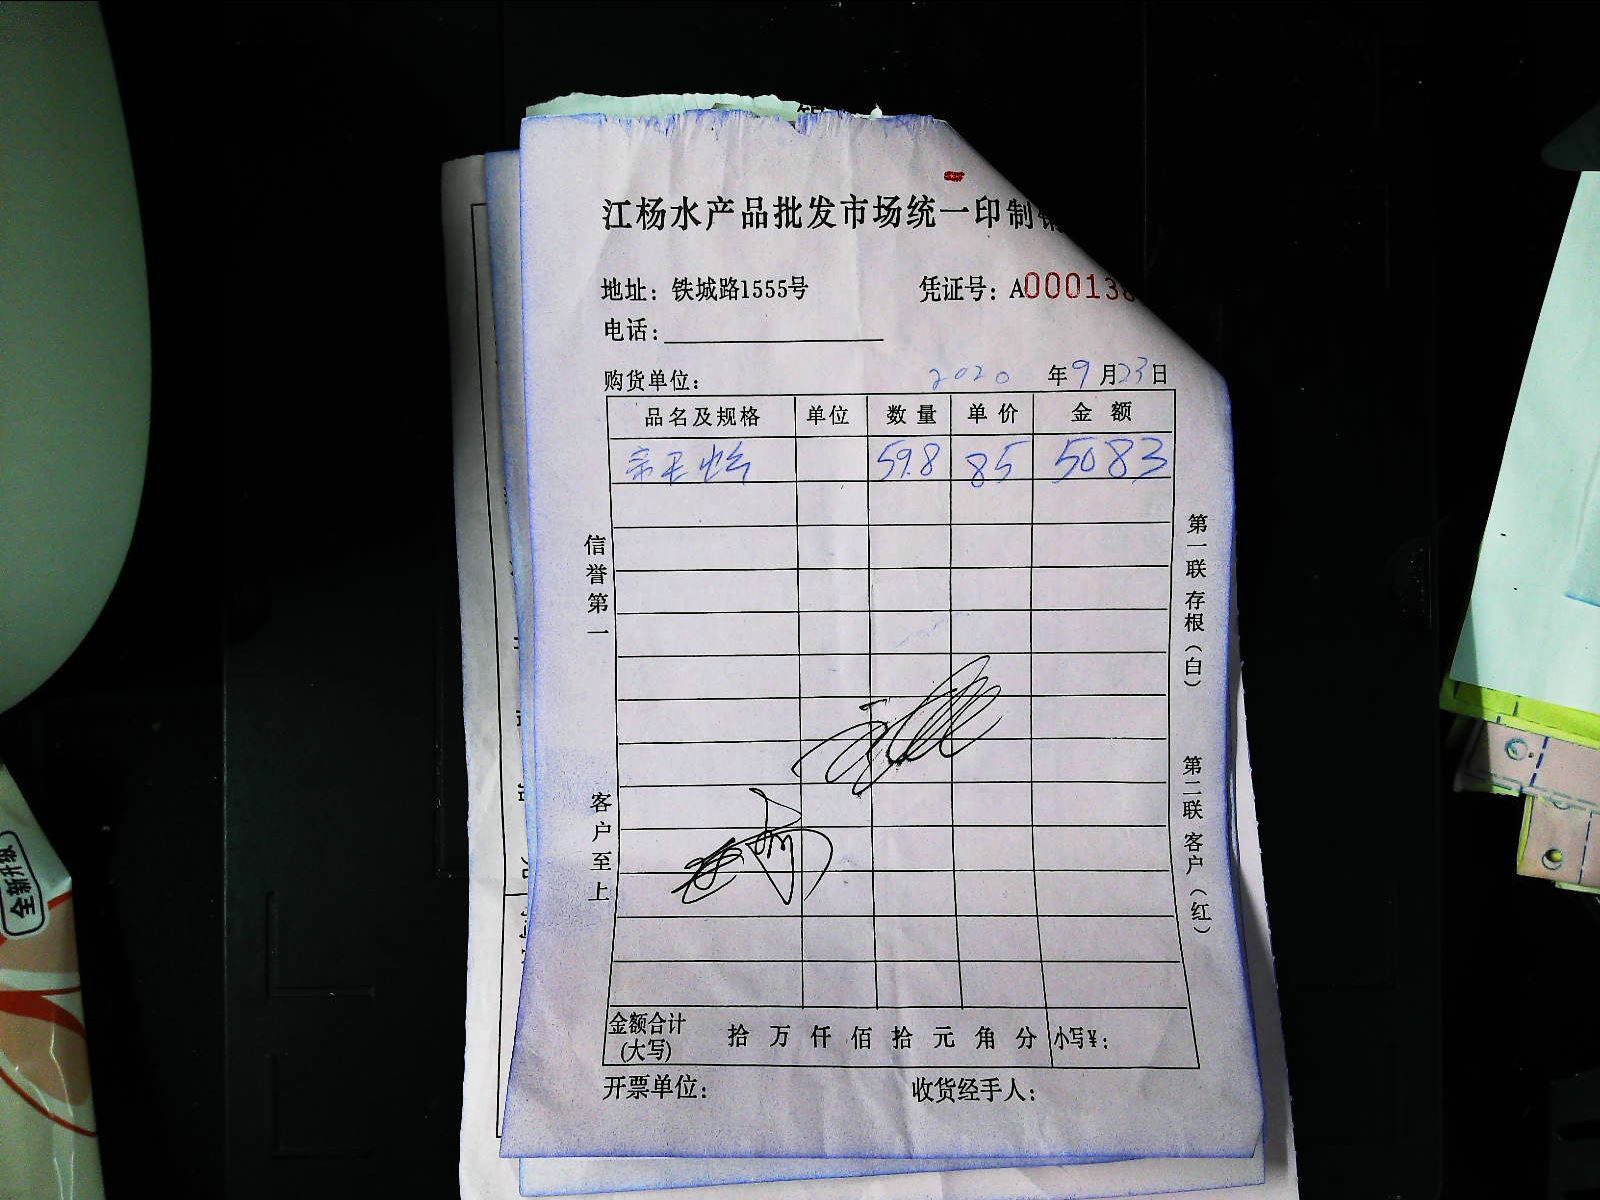 江杨水产品批发市场统一印制
地址：铁城路1555号
凭证号：A000138
电话：
购货单位：
2020 年 9 月 23 日
品名及规格 单位 数量 单价 金额
59.8 85 5083
信誉第一
客户至上
第一联 存根（白）
第二联 客户（红）
金额合计（大写） 拾 万 仟 佰 拾 元 角 分 小写¥：
开票单位： 收货经手人：
全新升级